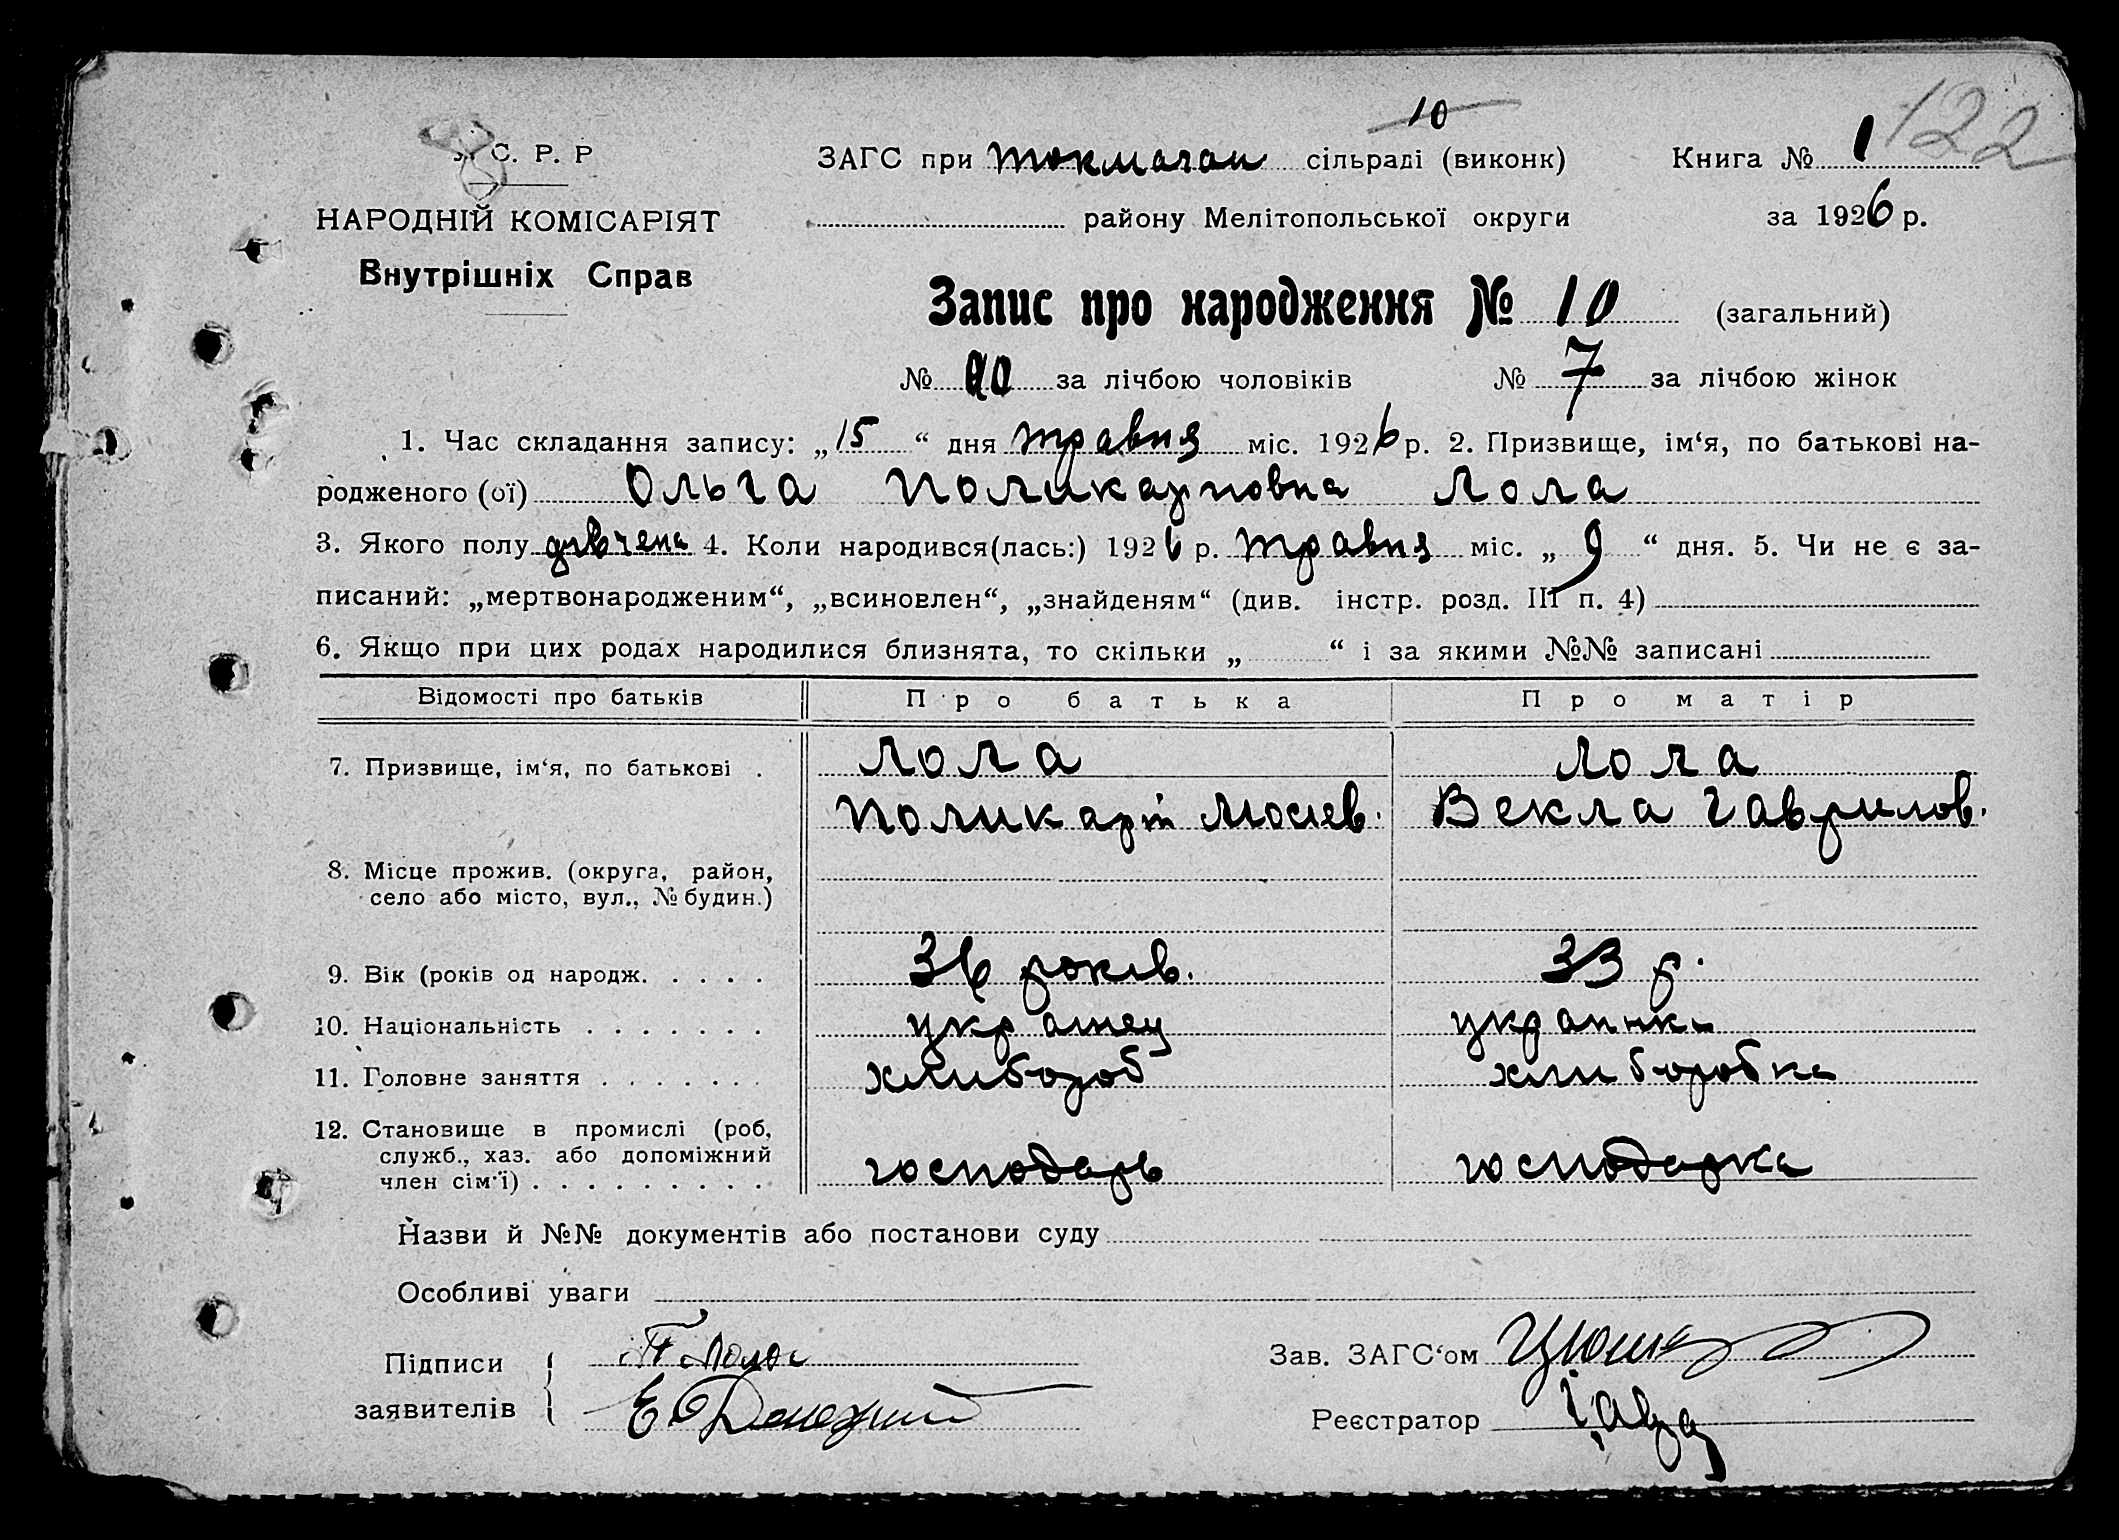 10
122
С. Р. Р
ЗАГС при сільраді (виконк) Книга № 1
НАРОДНІЙ КОМІСАРІЯТ
району Мелітопольської округи за 1926 р.
Внутрішніх Справ
Запис про народження № 10 (загальний)
№ за лічбою чоловіків № 7 за лічбою жінок
1. Час складання запису: „15“ дня травня міс. 1926 р. 2. Призвище, ім‘я, по батькові на-
родженого (ої) Ольга Поликарповна Лола
3. Якого полу дивчена 4. Коли народився(лась:) 1926 р. травня міс. „9“ дня. 5. Чи не є за-
писаний: „мертвонародженим“, „всиновлен“, „знайденям“ (див. інстр. розд. III п. 4)
6. Якщо при цих родах народилися близнята, то скільки „ “ і за якими №№ записані
Відомості про батьків Про батька Про матір
7. Призвище, ім‘я, по батькові . Лола Лола
Поликарп Мосиев. Векла Гаврилов.
8. Місце прожив. (округа, район,
село або місто, вул., № будин.)
9. Вік (років од народж. . . . . 36 років. 33 р.
10. Національність . . . . . . . украинец украинка
11. Головне заняття . . . . . . . хлибороб хлиборобка
12. Становище в промислі (роб,
служб., хаз. або допоміжний
член сім‘ї) . . . . . . . . . господарь господарка
Назви й №№ документів або постанови суду
Особливі уваги
Підписи П Лола Зав. ЗАГС‘ом
заявителів Е Реєстратор